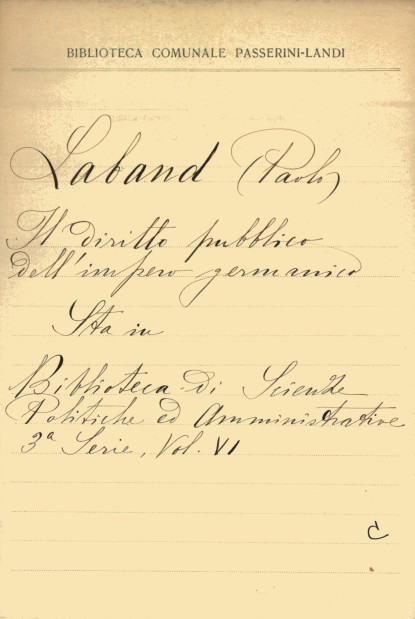 BIBLIOTECA COMUNALE PASSERINI-LANDI
Laband (Paolo)
Il diritto pubblico
dell'impero germanico
Sta in
Biblioteca di Scienze
Politiche ed Amministrative
3ª Serie, Vol. VI
C